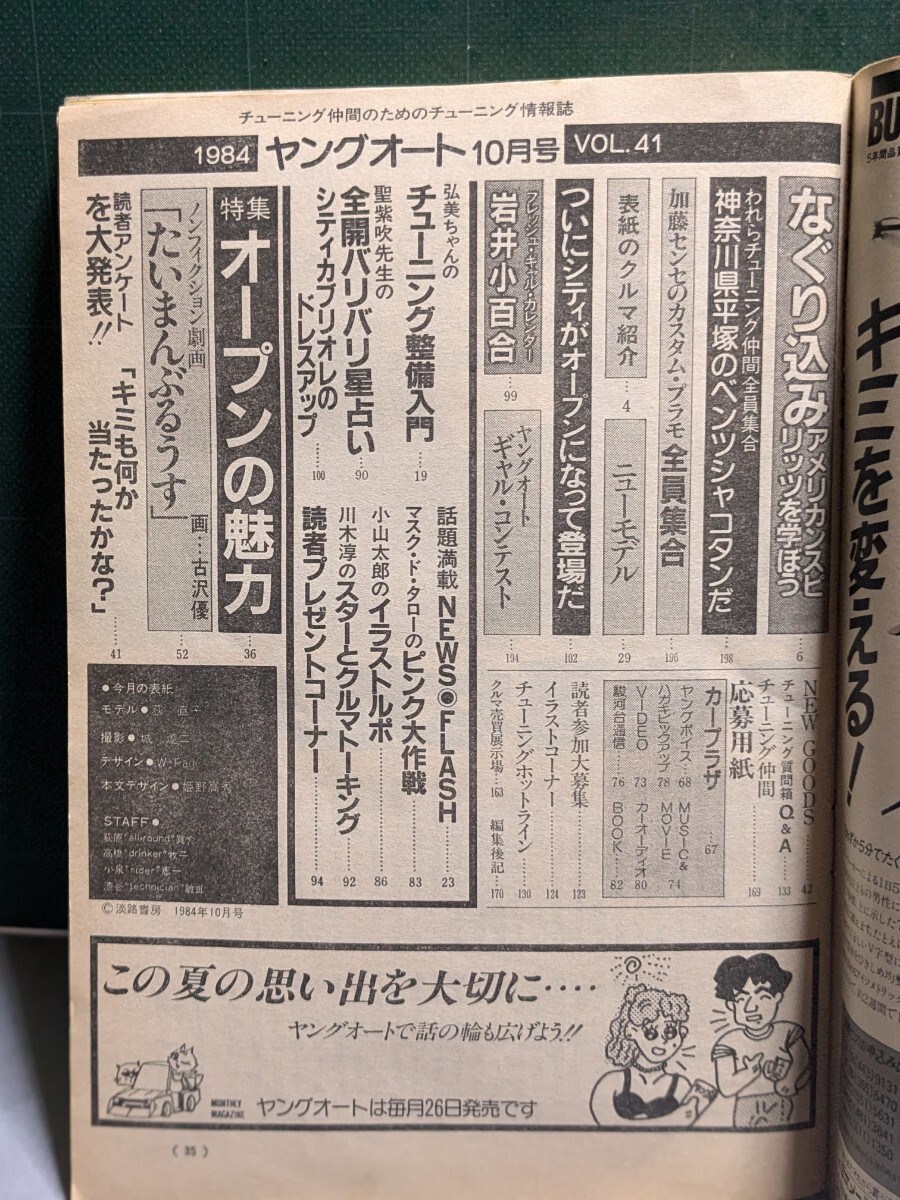 チューニング仲間のためのチューニング情報誌
1984 ヤングオート 10月号 VOL.41
なぐり込み アメリカンスピリッツを学ぼう
6
われらチューニング仲間全員集合
神奈川県平塚のベンツシャコタンだ
198
加藤センセのカスタム・プラモ全員集合
196
表紙のクルマ紹介
4
ニューモデル
29
ついにシティがオープンになって登場だ
102
フレッシュ・ギャル・カレンダー
岩井小百合
99
ヤングオート
ギャル・コンテスト
194
弘美ちゃんの
チューニング整備入門
19
聖紫吹先生の
全開バリバリ星占い
90
シティカブリオレの
ドレスアップ
100
話題満載 NEWS●FLASH
23
マスク・ド・タローのピンク大作戦
83
小山太郎のイラストルポ
86
川木淳のスターとクルマトーキング
92
読者プレゼントコーナー
94
特集 オープンの魅力
36
ノンフィクション劇画
「たいまんぶるうす」
画…古沢優
52
読者アンケート
を大発表!!
「キミも何か
当たったかな?」
41
NEW GOODS
42
チューニング質問箱Q&A
133
チューニング仲間
応募用紙
169
カープラザ
67
ヤングボイス 68
MUSIC&MOVIE 74
ハガキピックアップ 78
VIDEO 73
カーオーディオ 80
駿河台通信 76
BOOK 82
読者参加大募集
123
イラストコーナー
124
チューニングホットライン
130
クルマ売買展示場 163
編集後記 170
●今月の表紙
モデル●
撮影●
デザイン●
本文デザイン●姫野
STAFF●
萩原"allround"
高橋"drinker"
小泉"rider"憲一
"technician"敏郎
©淡路書房 1984年10月号
この夏の思い出を大切に‥‥
ヤングオートで話の輪も広げよう!!
MONTHLY
MAGAZINE
ヤングオートは毎月26日発売です
(35)
BU
キミを変える!